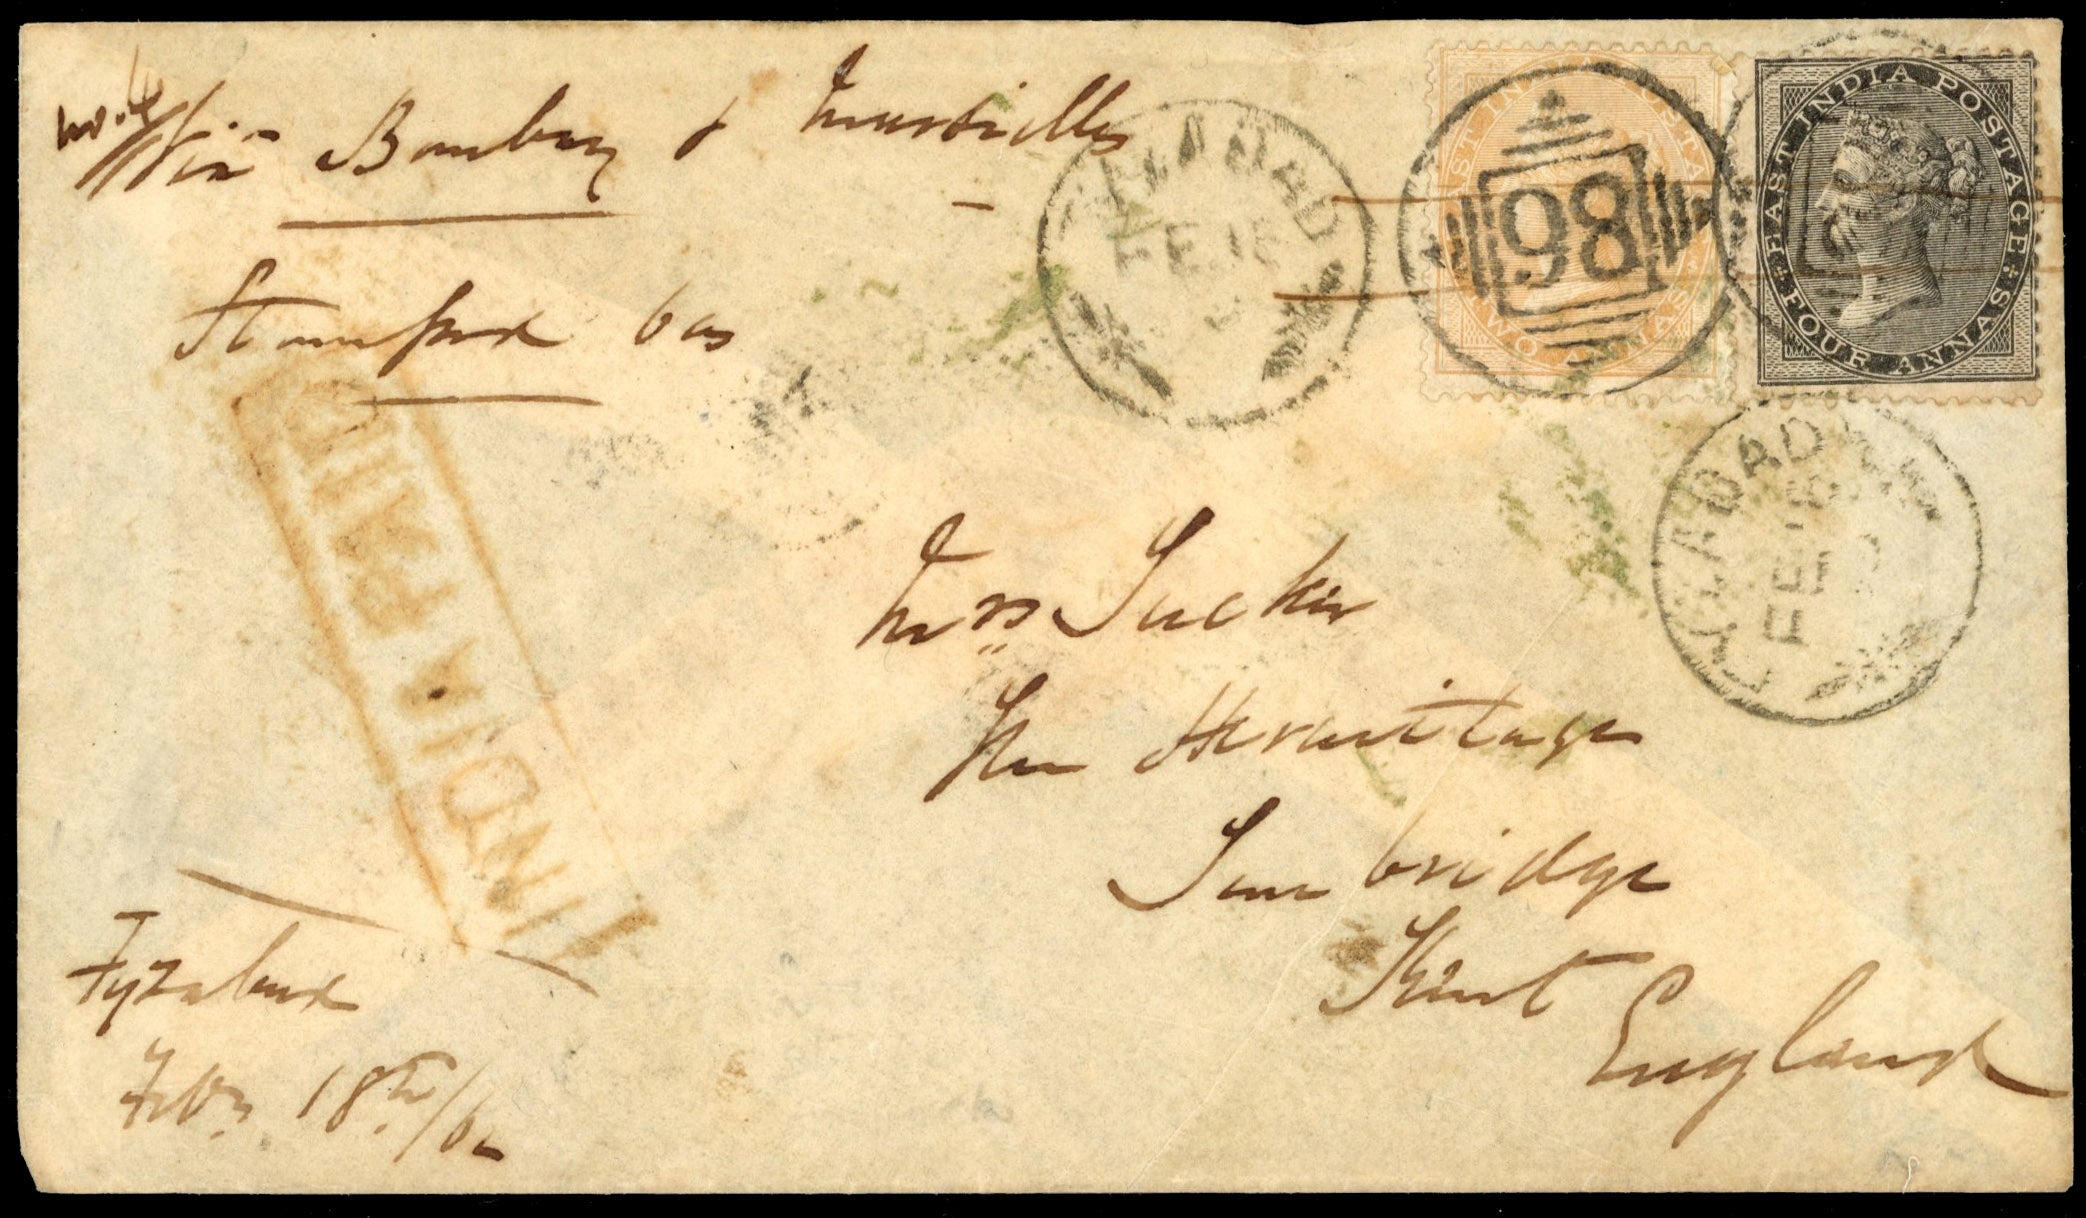 No. 4
Via Bombay & Marseilles
Stamped 6as
EAST INDIA POSTAGE
TWO ANNAS
98
EAST INDIA POSTAGE
FOUR ANNAS
FYZABAD
FE 18
FYZABAD
FE 18
INDIA PAID
Mrs Tucker
The Hermitage
Tunbridge
Kent
England
Fyzabad
Feby. 18th/62